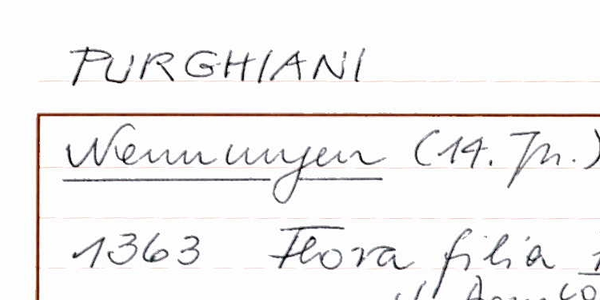 PURGHIANI
Nennungen (14. Jh.)
1363 Flora filia